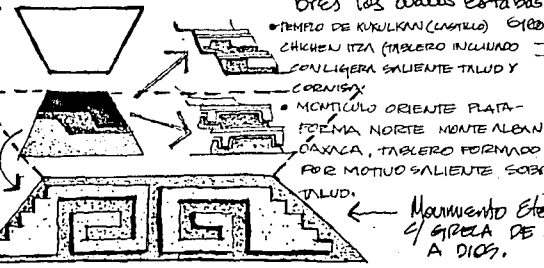 bres los cuales estaban
• TEMPLO DE KUKULKAN (CASTILLO)
CHICHEN ITZA (TABLERO INCLINADO
CON LIGERA SALIENTE TALUD Y
CORNISA.
• MONTICULO ORIENTE PLATA-
FORMA NORTE MONTE ALBAN
OAXACA, TABLERO FORMADO
POR MOTIVO SALIENTE SOB
TALUD.
Movimiento Ete
C/ GRECA DE
A DIOS.